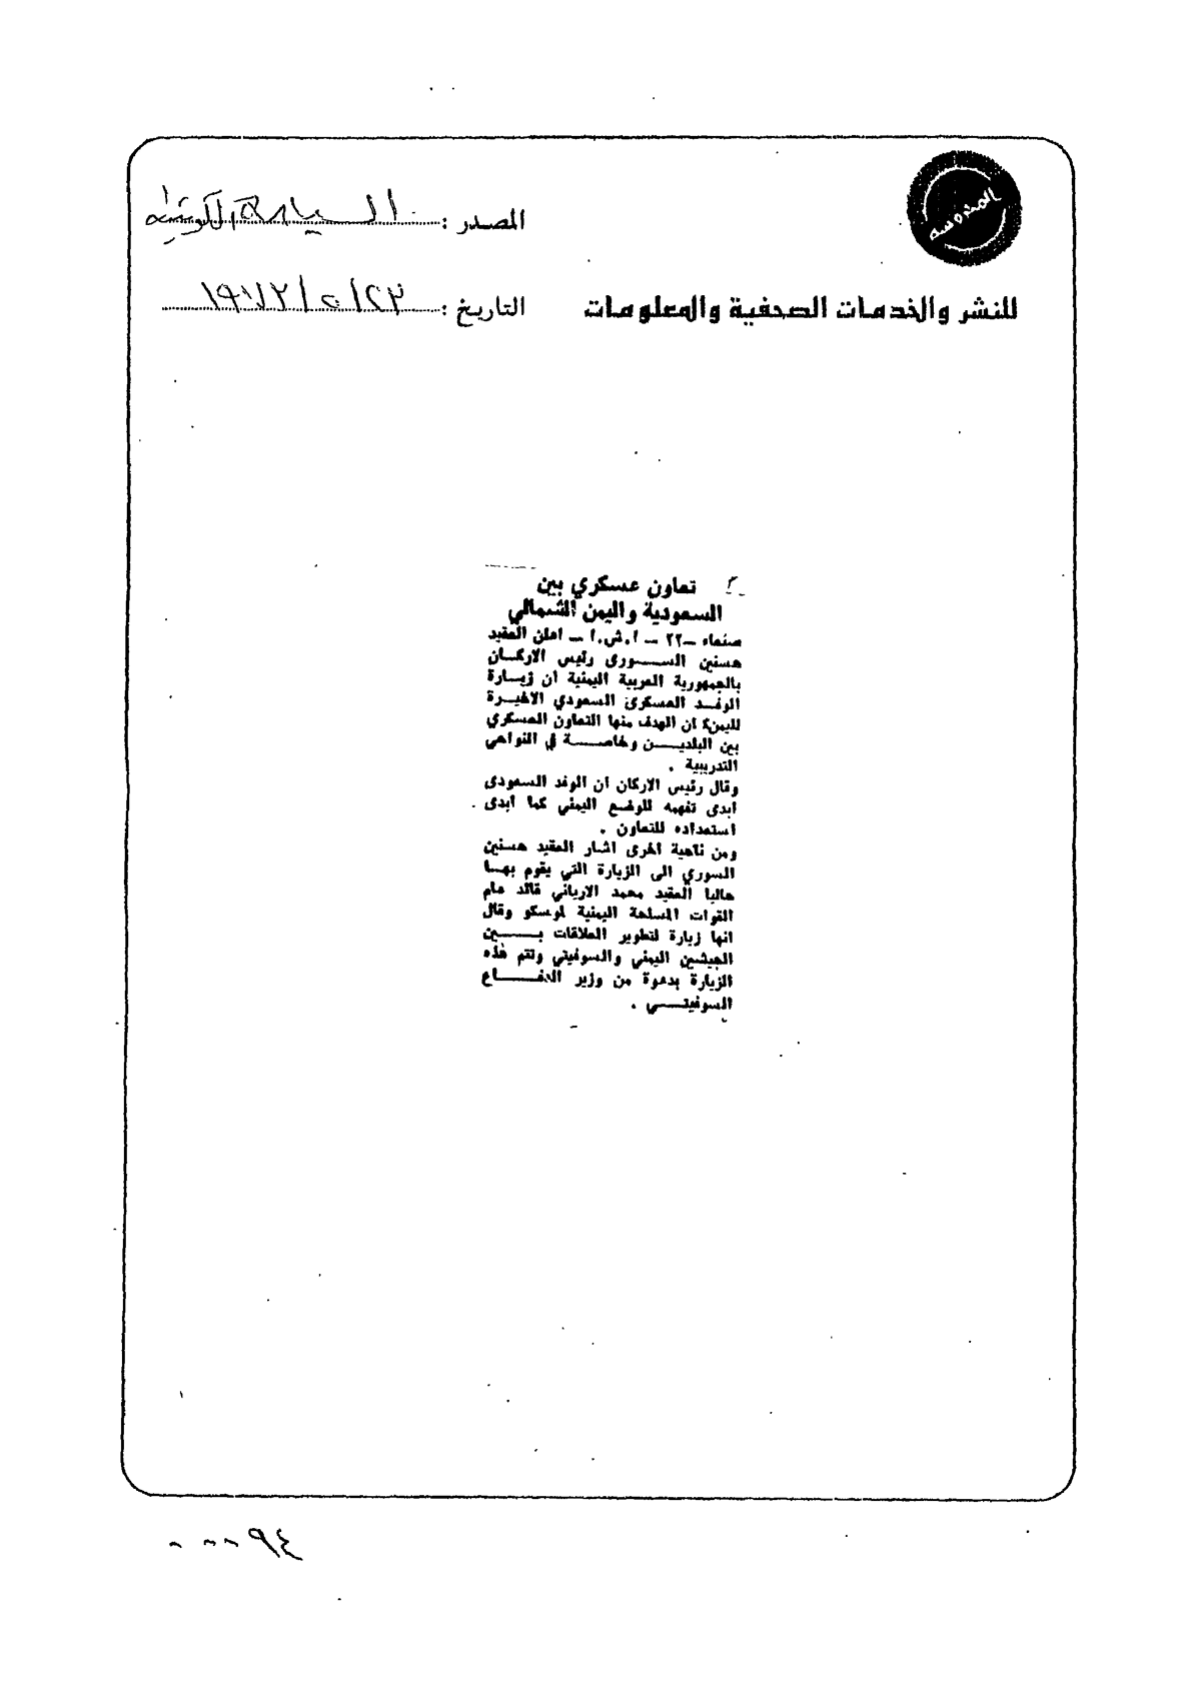 المصدر : السياسة الكويتية
للنشر والخدمات الصحفية والمعلومات
التاريخ : ٢٣ / ٥ /
تعاون عسكري بين
السعودية واليمن الشمالي
صنعاء -٢٢ - أ.ش.أ - اعلن العقيد
حسنين السورى رئيس الاركان
بالجمهورية العربية اليمنية ان زيارة
الوفد العسكرى السعودي الاخيرة
لليمن ان الهدف منها التعاون العسكري
بين البلدين وخاصة في النواحي
التدريبية .
وقال رئيس الاركان ان الوفد السعودى
ابدى تفهمه للوضع اليمني كما ابدى
استعداده للتعاون .
ومن ناحية اخرى اشار العقيد حسنين
السوري الى الزيارة التي يقوم بها
حاليا العقيد محمد الارياني قائد عام
القوات المسلحة اليمنية لموسكو وقال
انها زيارة لتطوير العلاقات بين
الجيشين اليمني والسوفيتي وتتم هذه
الزيارة بدعوة من وزير الدفاع
السوفيتي .